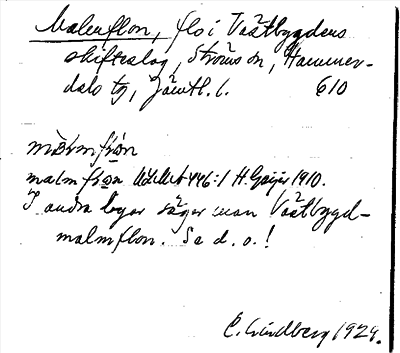 Malmflon, flo i Västbygdens
skifteslag, Ströms sn, Hammer-
dals tg, Jämtl. l. 610
malm flon 446:1 H. Geijer 1910.
I andra byar säger man Västbygd-
malmflon. Se d. o.!
C. Lindberg 1929.